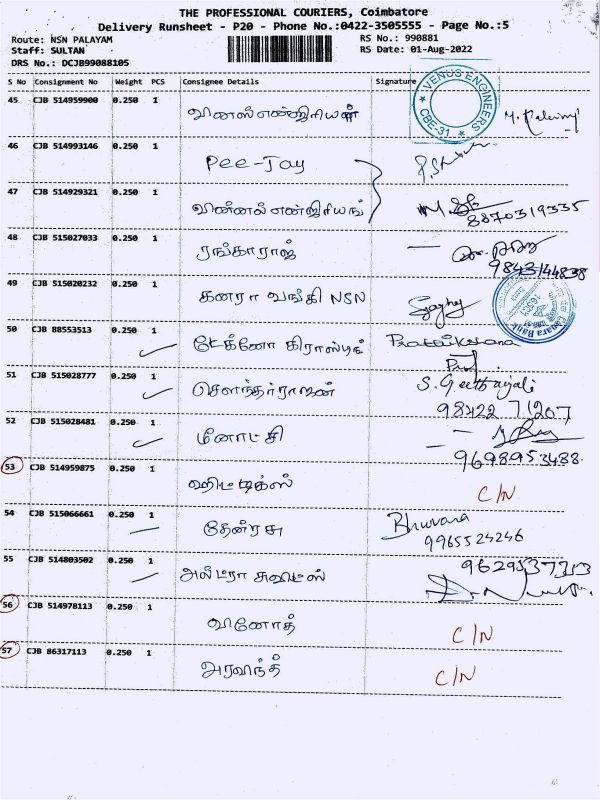 THE PROFESSIONAL COURIERS, Coimbatore
Delivery Runsheet - P20 - Phone No.:0422-3505555 - Page No.:5
Route: NSN PALAYAM RS No.: 990881
Staff: SULTAN RS Date: 01-Aug-2022
DRS No.: DCJB99088105
S No Consignment No Weight PCS Consignee Details Signature
VENUS ENGINEERS
CBE-31
45 CJB 514959900 0.250 1 வினஸ் என்ஜினியரிங்
46 CJB 514993146 0.250 1 Pee-Jay
47 CJB 514929321 0.250 1 வின்னல் என்ஜினியரிங்
8870319335
48 CJB 515027033 0.250 1 ரங்காராஜ் —
9843144838
49 CJB 515020232 0.250 1 கனரா வங்கி NSN
Canara Bank
50 CJB 88553513 0.250 1 டேக்னோ கிராஸ்டிங் Prathiksana
51 CJB 515028777 0.250 1 சௌந்தர்ராஜன் S. Geethanjali
98422 71207
52 CJB 515028481 0.250 1 மீனாட்சி
9698953488
53 CJB 514959875 0.250 1 ஹிட் டிக்ஸ் C/N
54 CJB 515066661 0.250 1 தேன்ரசு Bhuvana
9965524246
55 CJB 514803502 0.250 1 அல்ட்ரா 9629537313
56 CJB 514978113 0.250 1 வினோத் C/N
57 CJB 86317113 0.250 1 அரவிந்த் C/N